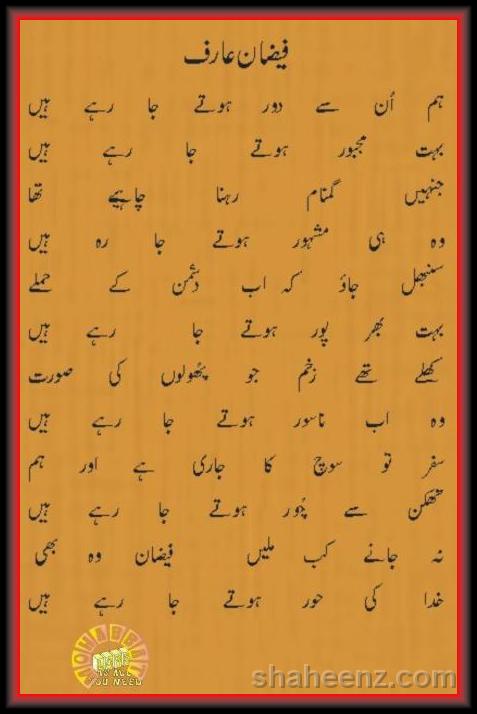 فیضان عارف
ہم اُن سے دور ہوتے جا رہے ہیں
بہت مجبور ہوتے جا رہے ہیں
جنہیں گمنام رہنا چاہیے تھا
وہ ہی مشہور ہوتے جا رہ ہیں
سنبھل جاؤ کہ اب دشمن کے حملے
بہت بھر پور ہوتے جا رہے ہیں
کھلے تھے زخم جو پھولوں کی صورت
وہ اب ناسور ہوتے جا رہے ہیں
سفر تو سوچ کا جاری ہے اور ہم
تھکن سے چُور ہوتے جا رہے ہیں
نہ جانے کب ملیں فیضان وہ بھی
خدا کی حور ہوتے جا رہے ہیں
shaheenz.com